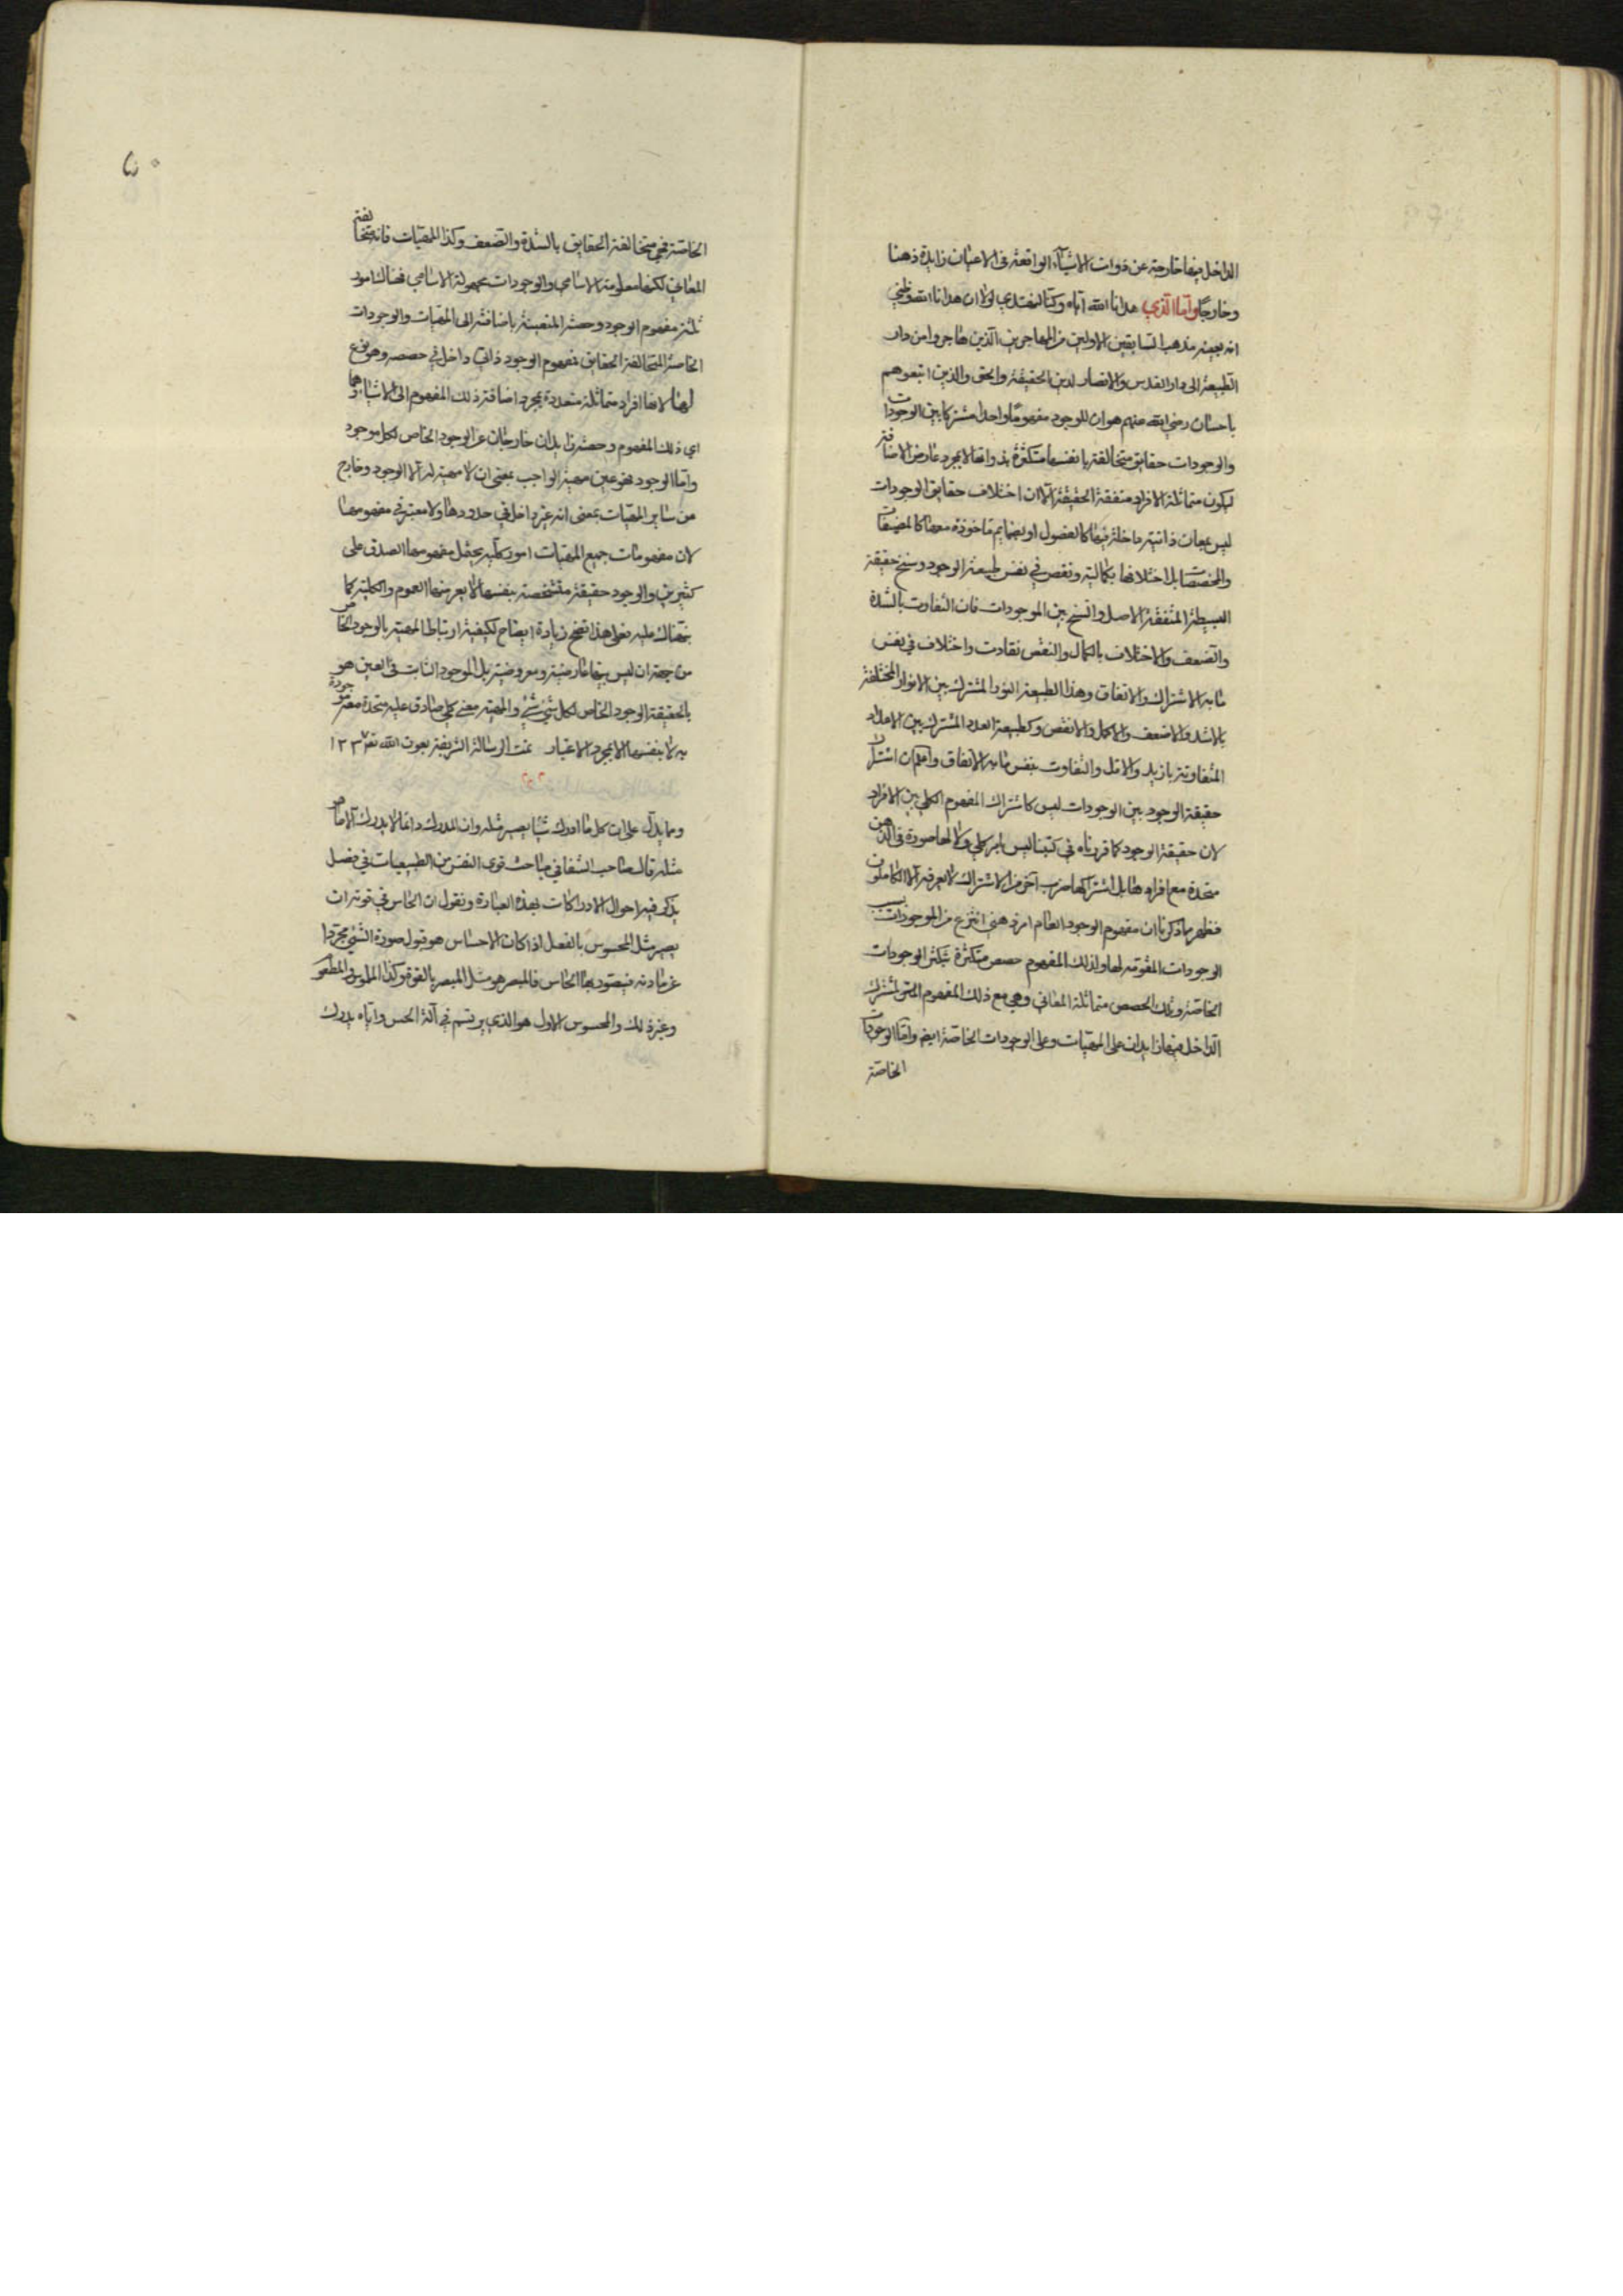 الداخل فيها خارجة عن ذوات الاشياء الواقعة فى الاعيان زايدة ذهنا
وخارجا واما الذي هدانا الله اياه وكنا لنهتدي لولا ان هدانا الله وظني
انه بعينه مذهب السابقين الاولين من المهاجرين الذين هاجروا من دار
الطبيعة الى دار القدس والانصار لدين الحقيقة والحق والذين اتبعوهم
باحسان رضي الله عنهم هو ان للوجود مفهوما واحدا مشتركا بين الوجودات
والوجودات حقايق متخالفة بانفسها متكثرة بذواتها لا بمجرد عارض الاضافة
ليكون متماثلة الافراد متفقة الحقيقة الا ان اختلاف حقايق الوجودات
ليس بهيات ذاتية داخلة فيها كالفصول او بضمايم ماخوذة معها كالمضيفات
والمخصصات بل اختلافها بكمالية ونقص في نفس طبيعة الوجود وسنخ حقيقة
البسيطة المتفقة الاصل والسنخ بين الموجودات فان التفاوت بالشدة
والضعف والاختلاف بالكمال والنقص تفاوت واختلاف في نفس
ما به الاشتراك والاتفاق وهذا الطبيعة النور المشترك بين الانوار المختلفة
بالاشد والاضعف والاكمل والانقص وكطبيعة العدد المشترك بين الاعداد
المتفاوتة بازيد والاقل والتفاوت بنفس ما به الاتفاق واعلم ان اشتراك
حقيقة الوجود بين الوجودات ليس كاشتراك المفهوم الكلي بين الافراد
لان حقيقة الوجود كما قررناه في كتبنا ليس بامر كلي ولا لها صورة فى الذهن
متحدة مع افرادها بل اشتراكها ضرب آخر من الاشتراك لا يعرفه الا الكاملون
فظهر بما ذكرنا ان مفهوم الوجود العام امر ذهني انتزع من الموجودات بسبب
الوجودات المقومة لها ولذلك المفهوم حصص متكثرة بتكثر الوجودات
الخاصة وتلك الحصص متماثلة المعاني وهي مع ذلك المفهوم المشترك
الداخل فيها زايدان على المهيات وعلى الوجودات الخاصة ايضا واما الوجودات
الخاصة
الخاصة فهي متخالفة الحقايق بالشدة والضعف وكذا المهيات فانها متخالفة
المعاني لكنها معلومة الاسامي والوجودات مجهولة الاسامي فهناك امور
ثلثة مفهوم الوجود وحصته المتعينة باضافته الى المهيات والوجودات
الخاصة المتخالفة الحقايق فمفهوم الوجود ذاتي داخل في حصصه وهو نوع
لها لانها افراد متماثلة متعددة بمجرد اضافة ذلك المفهوم الى الاشياء وهما
اي ذلك المفهوم وحصته زايدان خارجان عن الوجود الخاص لكل موجود
واما الوجود فهو عين مهية الواجب بمعنى ان لا مهية له الا الوجود وخارج
من ساير المهيات بمعنى انه غير داخل في حدودها ولا معتبر في مفهومها
لان مفهومات جميع المهيات امور كلية يحتمل مفهومها الصدق على
كثيرين والوجود حقيقة متشخصة بنفسها لا يعرضها العموم والكلية كما
نبهناك عليه فعلى هذا اتضح زيادة ايضاح لكيفية ارتباط المهية بالوجود الخاص
من جهة ان ليس بينهما عارضية ومعروضية بل الموجود الثابت فى العين هو
بالحقيقة الوجود الخاص لكل شيء شيء والمهية معنى كلي صادق عليه متحدة معه موجودة
به لا بنفسها الا بمجرد الاعتبار تمت الرسالة الشريفة بعون الله تعالى ١٢٣٧
ومما يدل على ان كل ما ادرك شيئا يصير مثله وان المدرك دائما لا يدرك الا ما هو
مثله قال صاحب الشفا في مباحث قوى النفس من الطبيعيات في فصل
يذكر فيه احوال الادراكات بهذه العبارة ونقول ان الحاس في قوته ان
يصير مثل المحسوس بالفعل اذا كان الاحساس هو قبول صورة الشيء مجردا
عن مادته فيتصور بها الحاس فالمبصر هو مثل المبصر بالقوة وكذا الملموس والمطعوم
وغير ذلك والمحسوس الاول هو الذي يرتسم في آلة الحس واياه يدرك